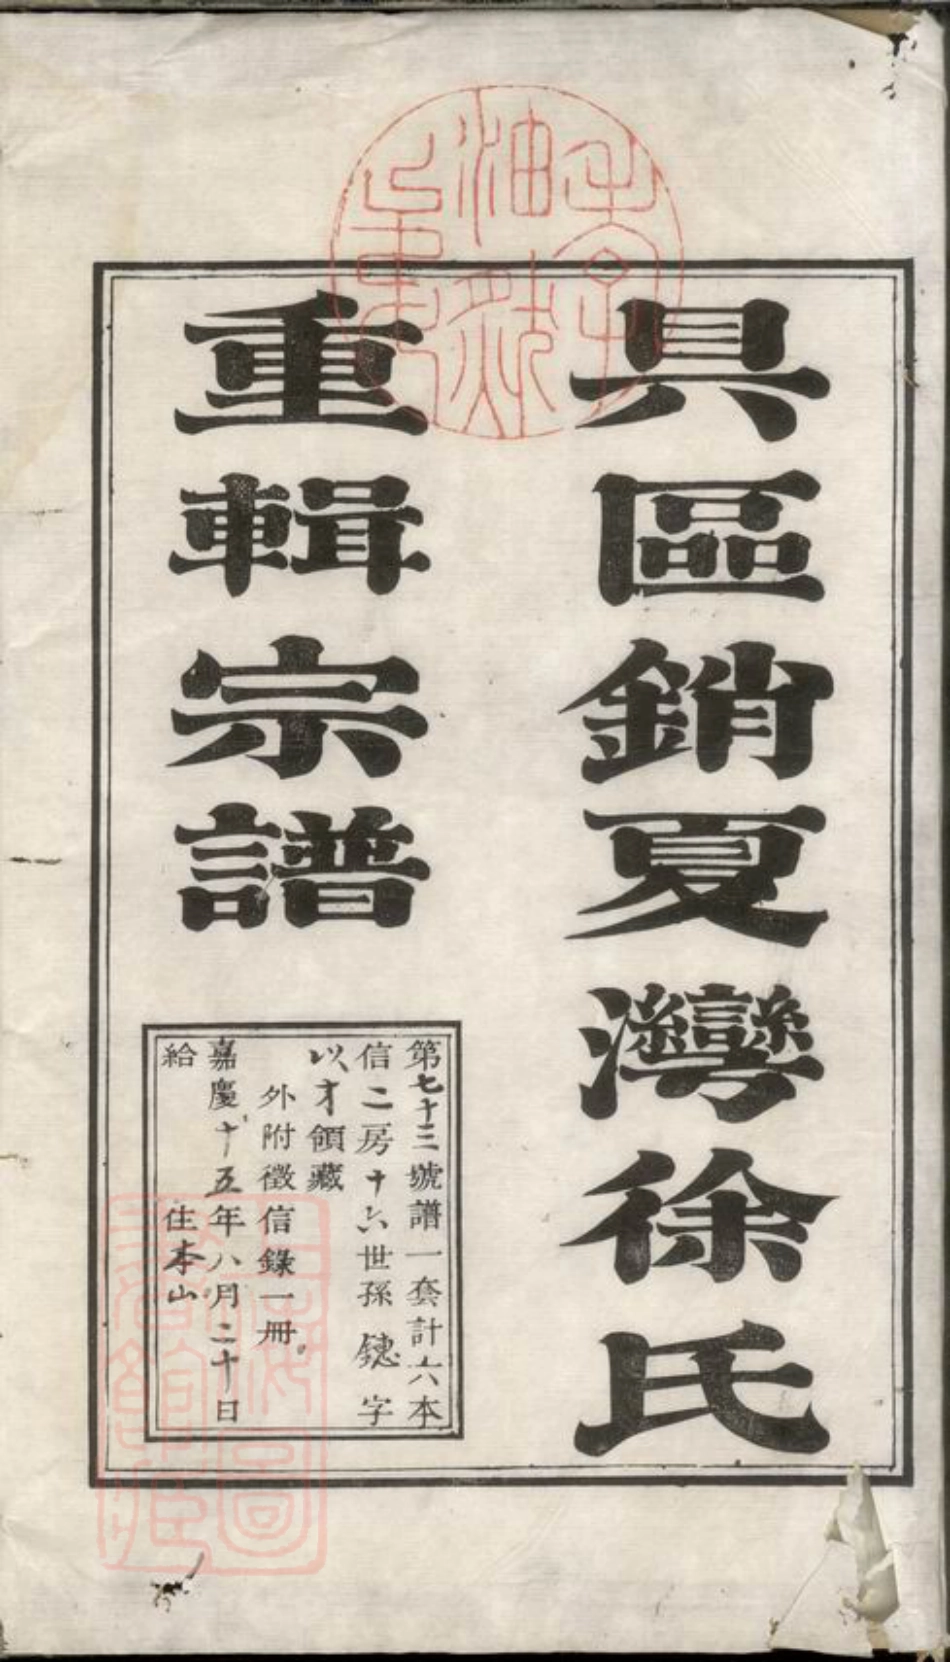 具區銷夏灣徐氏
重輯宗譜
第七十三號譜一套計六本
信二房十六世孫鏸字
以才領藏
外附徵信錄一冊
嘉慶十五年八月二十日
給 住本山